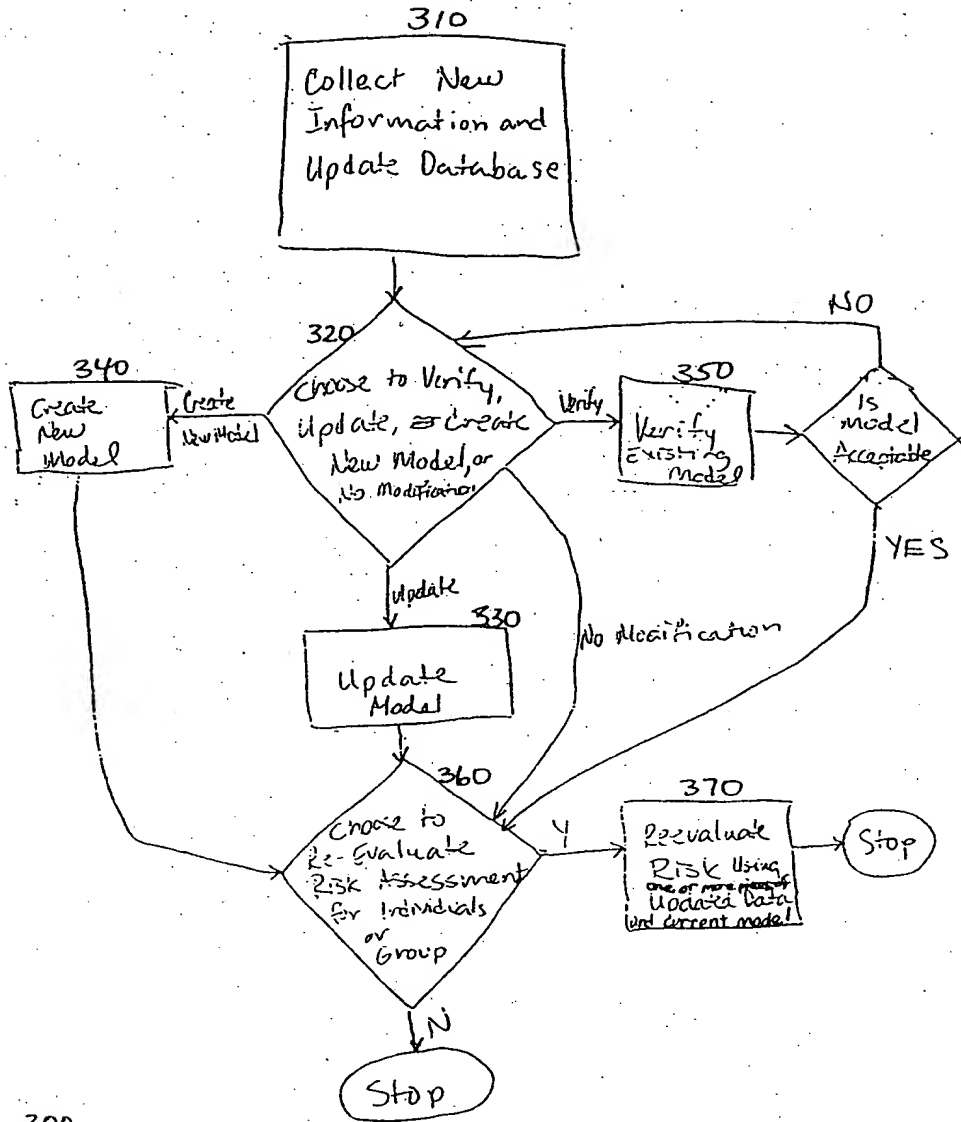 310
Collect New
Information and
Update Database
320
Choose to Verify,
Update, or Create
New Model, or
No Modification
Create
New Model
340
Create
New
Model
Verify
350
Verify
Existing
Model
NO
Is
Model
Acceptable
YES
Update
330
Update
Model
No Modification
360
Choose to
Re-Evaluate
Risk Assessment
for Individuals
or
Group
Y
370
Reevaluate
Risk Using
one or more pieces of
Updated Data
and current model
Stop
N
Stop
300